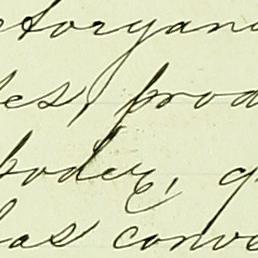 ctoryand
les, prod
poder, q
las conve